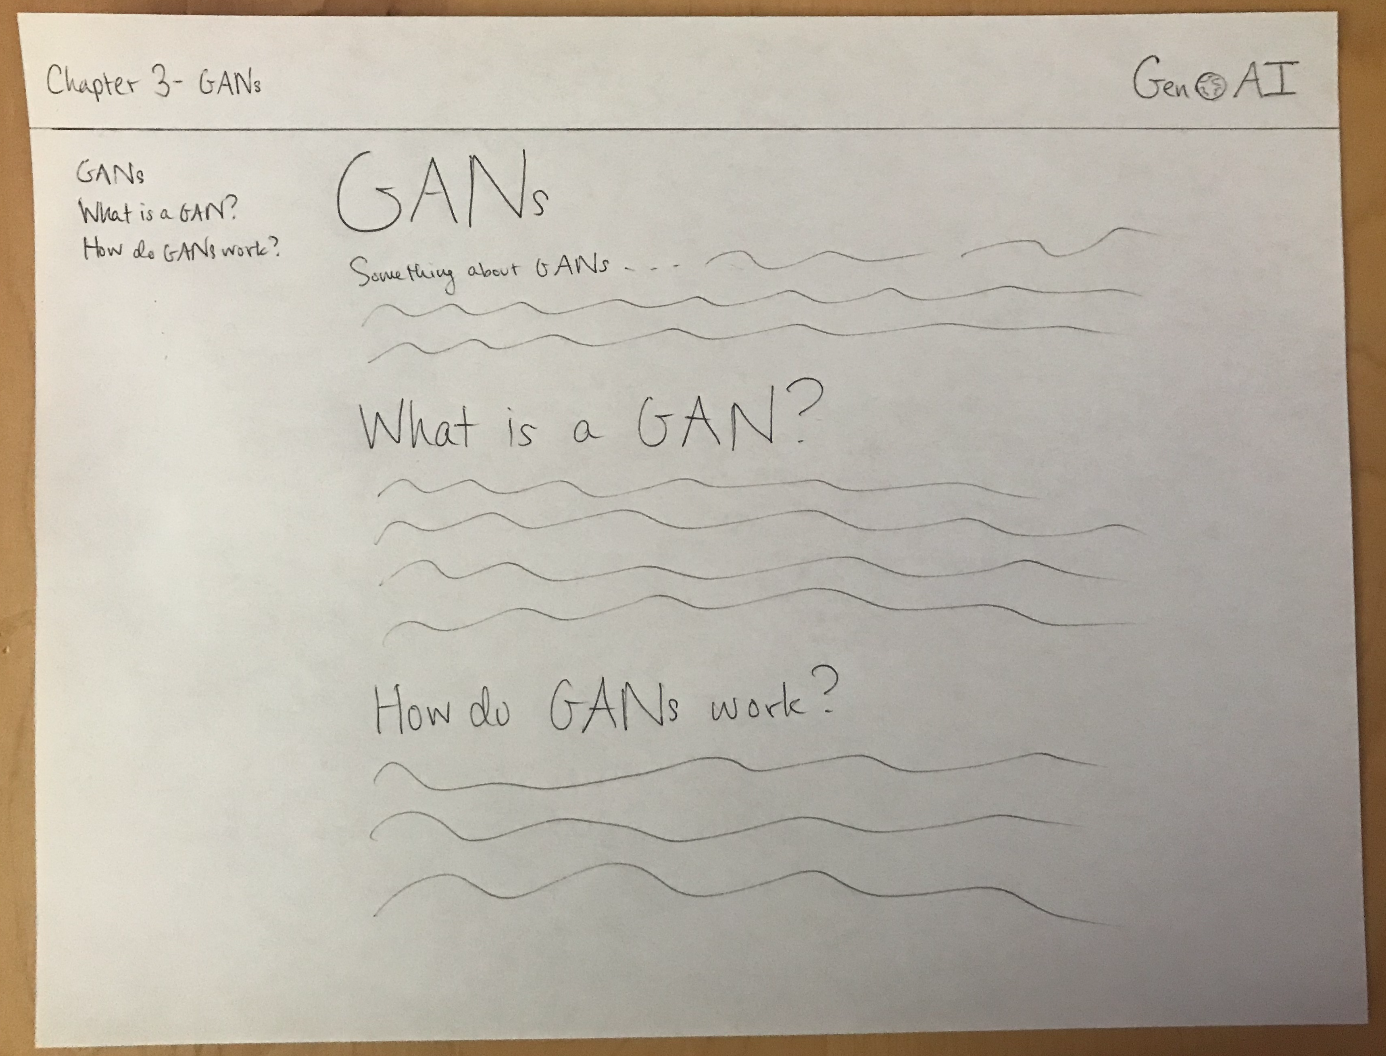 Chapter 3- GANs
Gen AI
GANs
What is a GAN?
How do GANs work?
GANs
Something about GANs ----
What is a GAN?
How do GANs work?